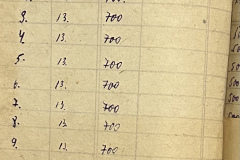 3. 13. 700
4. 13. 700
5. 13. 700
6. 13. 700
7. 13. 700
8. 13. 700
9. 13. 700